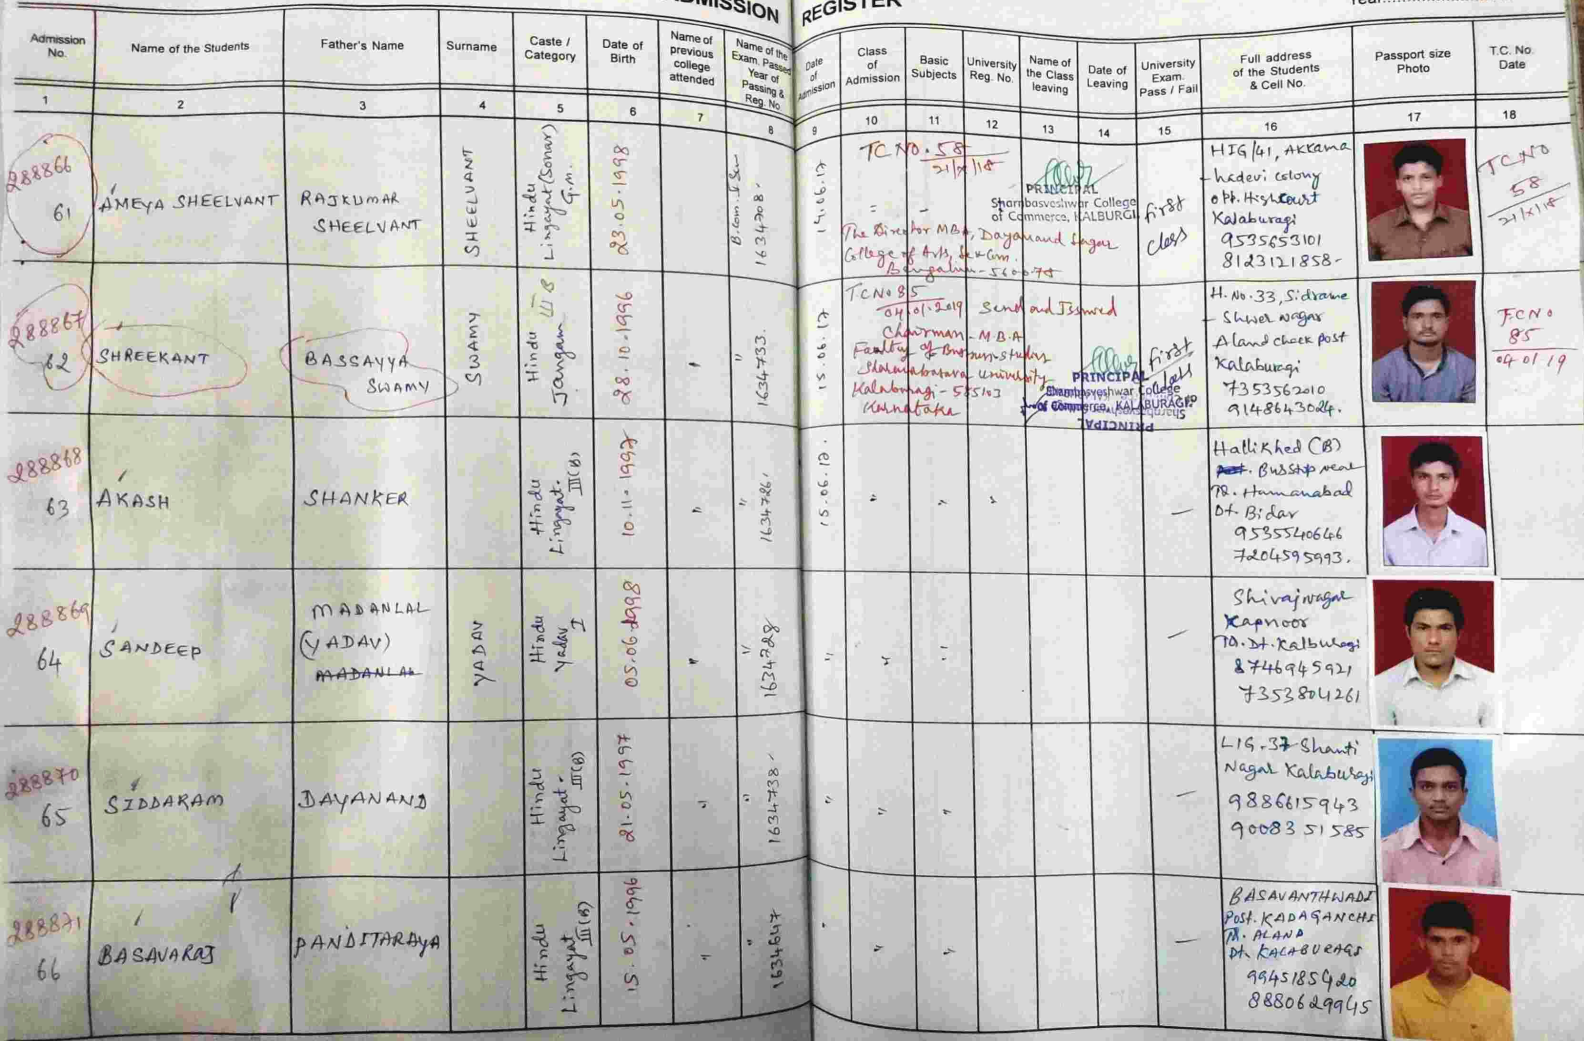 ADMISSION REGISTER
Admission No.
Name of the Students
Father's Name
Surname
Caste / Category
Date of Birth
Name of previous college attended
Name of the Exam. Passed Year of Passing & Reg. No
Date of Admission
Class of Admission
Basic Subjects
University Reg. No.
Name of the Class leaving
Date of Leaving
University Exam. Pass / Fail
Full address of the Students & Cell No.
Passport size Photo
T.C. No. Date
1 2 3 4 5 6 7 8 9 10 11 12 13 14 15 16 17 18
288866
61
AMEYA SHEELVANT
RAJKUMAR
SHEELVANT
SHEELVANT
Hindu
Lingayat (Sonar)
G.m.
23.05.1998
1634708
14.06.17
TC NO. 58
21/X/18
PRINCIPAL
Sharnbasveshwar College
of Commerce, KALBURGI
The Director MBA, Dayanand Sagar
College of Arts, Sc & Com.
Bengaluru - 560078
first
class
HIG/41, Akkama
hadevi colony
opp. Highcourt
Kalaburagi
9535653101
8123121858-
TC NO
58
21/X/18
288867
62
SHREEKANT
BASSAYYA
SWAMY
SWAMY
Hindu
Jangam III B
28.10.1996
"
1634733.
15.06.17
TC No 85
04/01/2019 Send and Issued
Chairman - M.B.A
Faculty of Business studies
Sharnabasava University
Kalaburagi - 585103
Karnataka
PRINCIPAL
Sharnbasveshwar College
of Commerce, KALABURAGI
PRINCIPAL
first
class
H. No. 33, Sidrame
- Shwer nagar
Aland check post
Kalaburagi
7353562010
9148643024.
TC NO
85
04/01/19
288868
63
AKASH
SHANKER
Hindu
Lingayat.
III(B)
10.11.1997
" "
1634726
15.06.17.
" " "
—
Hallikhed (B)
Busstop near
Tq. Humanabad
Dt. Bidar
9535540646
7204595993.
288869
64
SANDEEP
MADANLAL
(YADAV)
MADANLAL
YADAV
Hindu
Yadav
I
05.06.1998
" "
1634728
" " "
—
Shivajinagar
Kapnoor
Tq. Dt. Kalburagi
8746945921
7353804261
288870
65
SIDDARAM
DAYANAND
Hindu
Lingayat.
III(B)
21.05.1997
" "
1634738
" " "
—
LIG-37 Shanti
Nagar Kalaburagi
9886615943
9008351585
288871
66
BASAVARAJ
PANDITARAYA
Hindu
Lingayat
III(B)
15.05.1996
" "
1634647
" " "
—
BASAVANTHWADI
Post. KADAGANCHI
Tq. ALAND
Dt. KALABURAGI
9945185420
8880629945